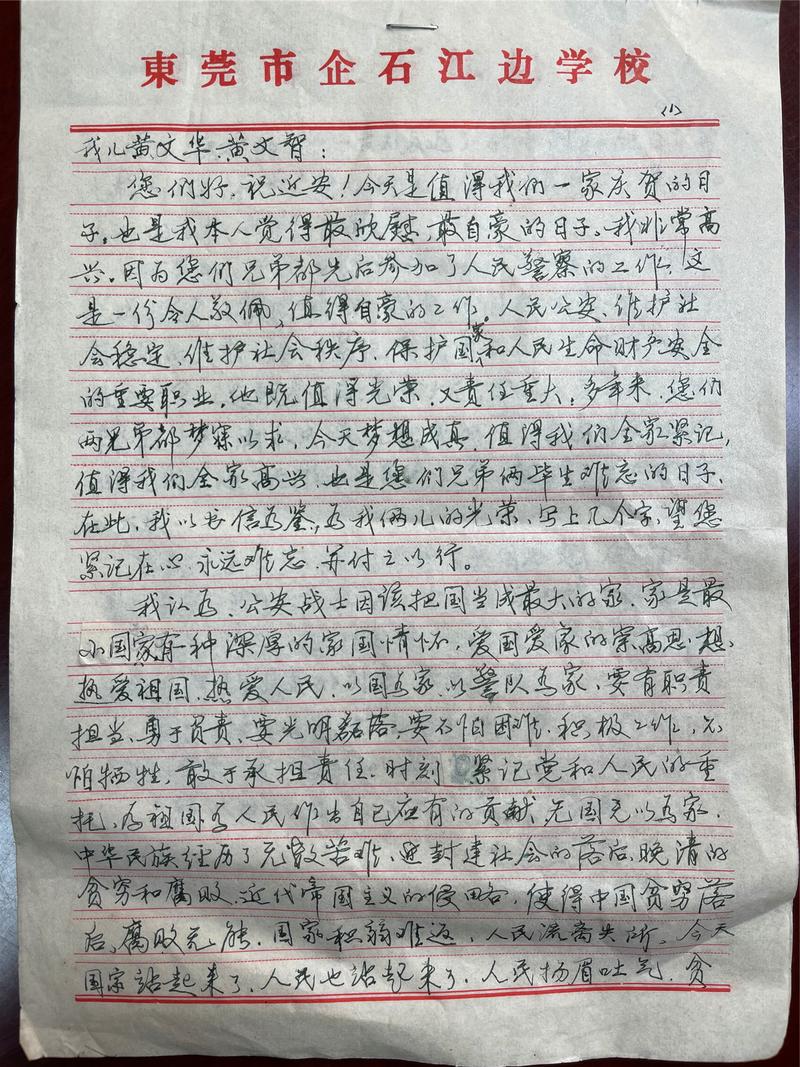 東莞市企石江边学校
<1>
我儿黄文华、黄文智:
您们好.祝近安!今天是值得我们一家庆贺的日
子.也是我本人觉得最欣慰、最自豪的日子、我非常高
兴.因为您们兄弟都先后参加了人民警察的工作、这
是一份令人敬佩、值得自豪的工作。人民公安、维护社
会稳定、维护社会秩序、保护国家和人民生命财产安全
的重要职业.他既值得光荣、又责任重大,多年来、您们
两兄弟都梦寐以求、今天梦想成真、值得我们全家紧记,
值得我们全家高兴、也是您们兄弟俩毕生难忘的日子、
在此,我以书信为鉴,为我俩儿的光荣、写上几个字、望您
紧记在心、永远难忘、并付之以行。
我认为、公安战士因该把国当成最大的家.家是最
小国家有一种深厚的家国情怀,爱国爱家的崇高思想、
热爱祖国、热爱人民、以国为家、以警队为家、要有职责
担当、勇于负责、要光明磊落、要不怕困难、积极工作、不
怕牺牲,敢于承担责任.时刻紧记党和人民的重
托、为祖国为人民作出自己应有的贡献.无国无以为家.
中华民族经历了无数苦难、封建社会的落后、晚清的
贫穷和腐败、近代帝国主义的侵略,使得中国贫穷落
后、腐败无能、国家积弱难返,人民流离失所、今天
国家站起来了、人民也站起来了、人民扬眉吐气.贫